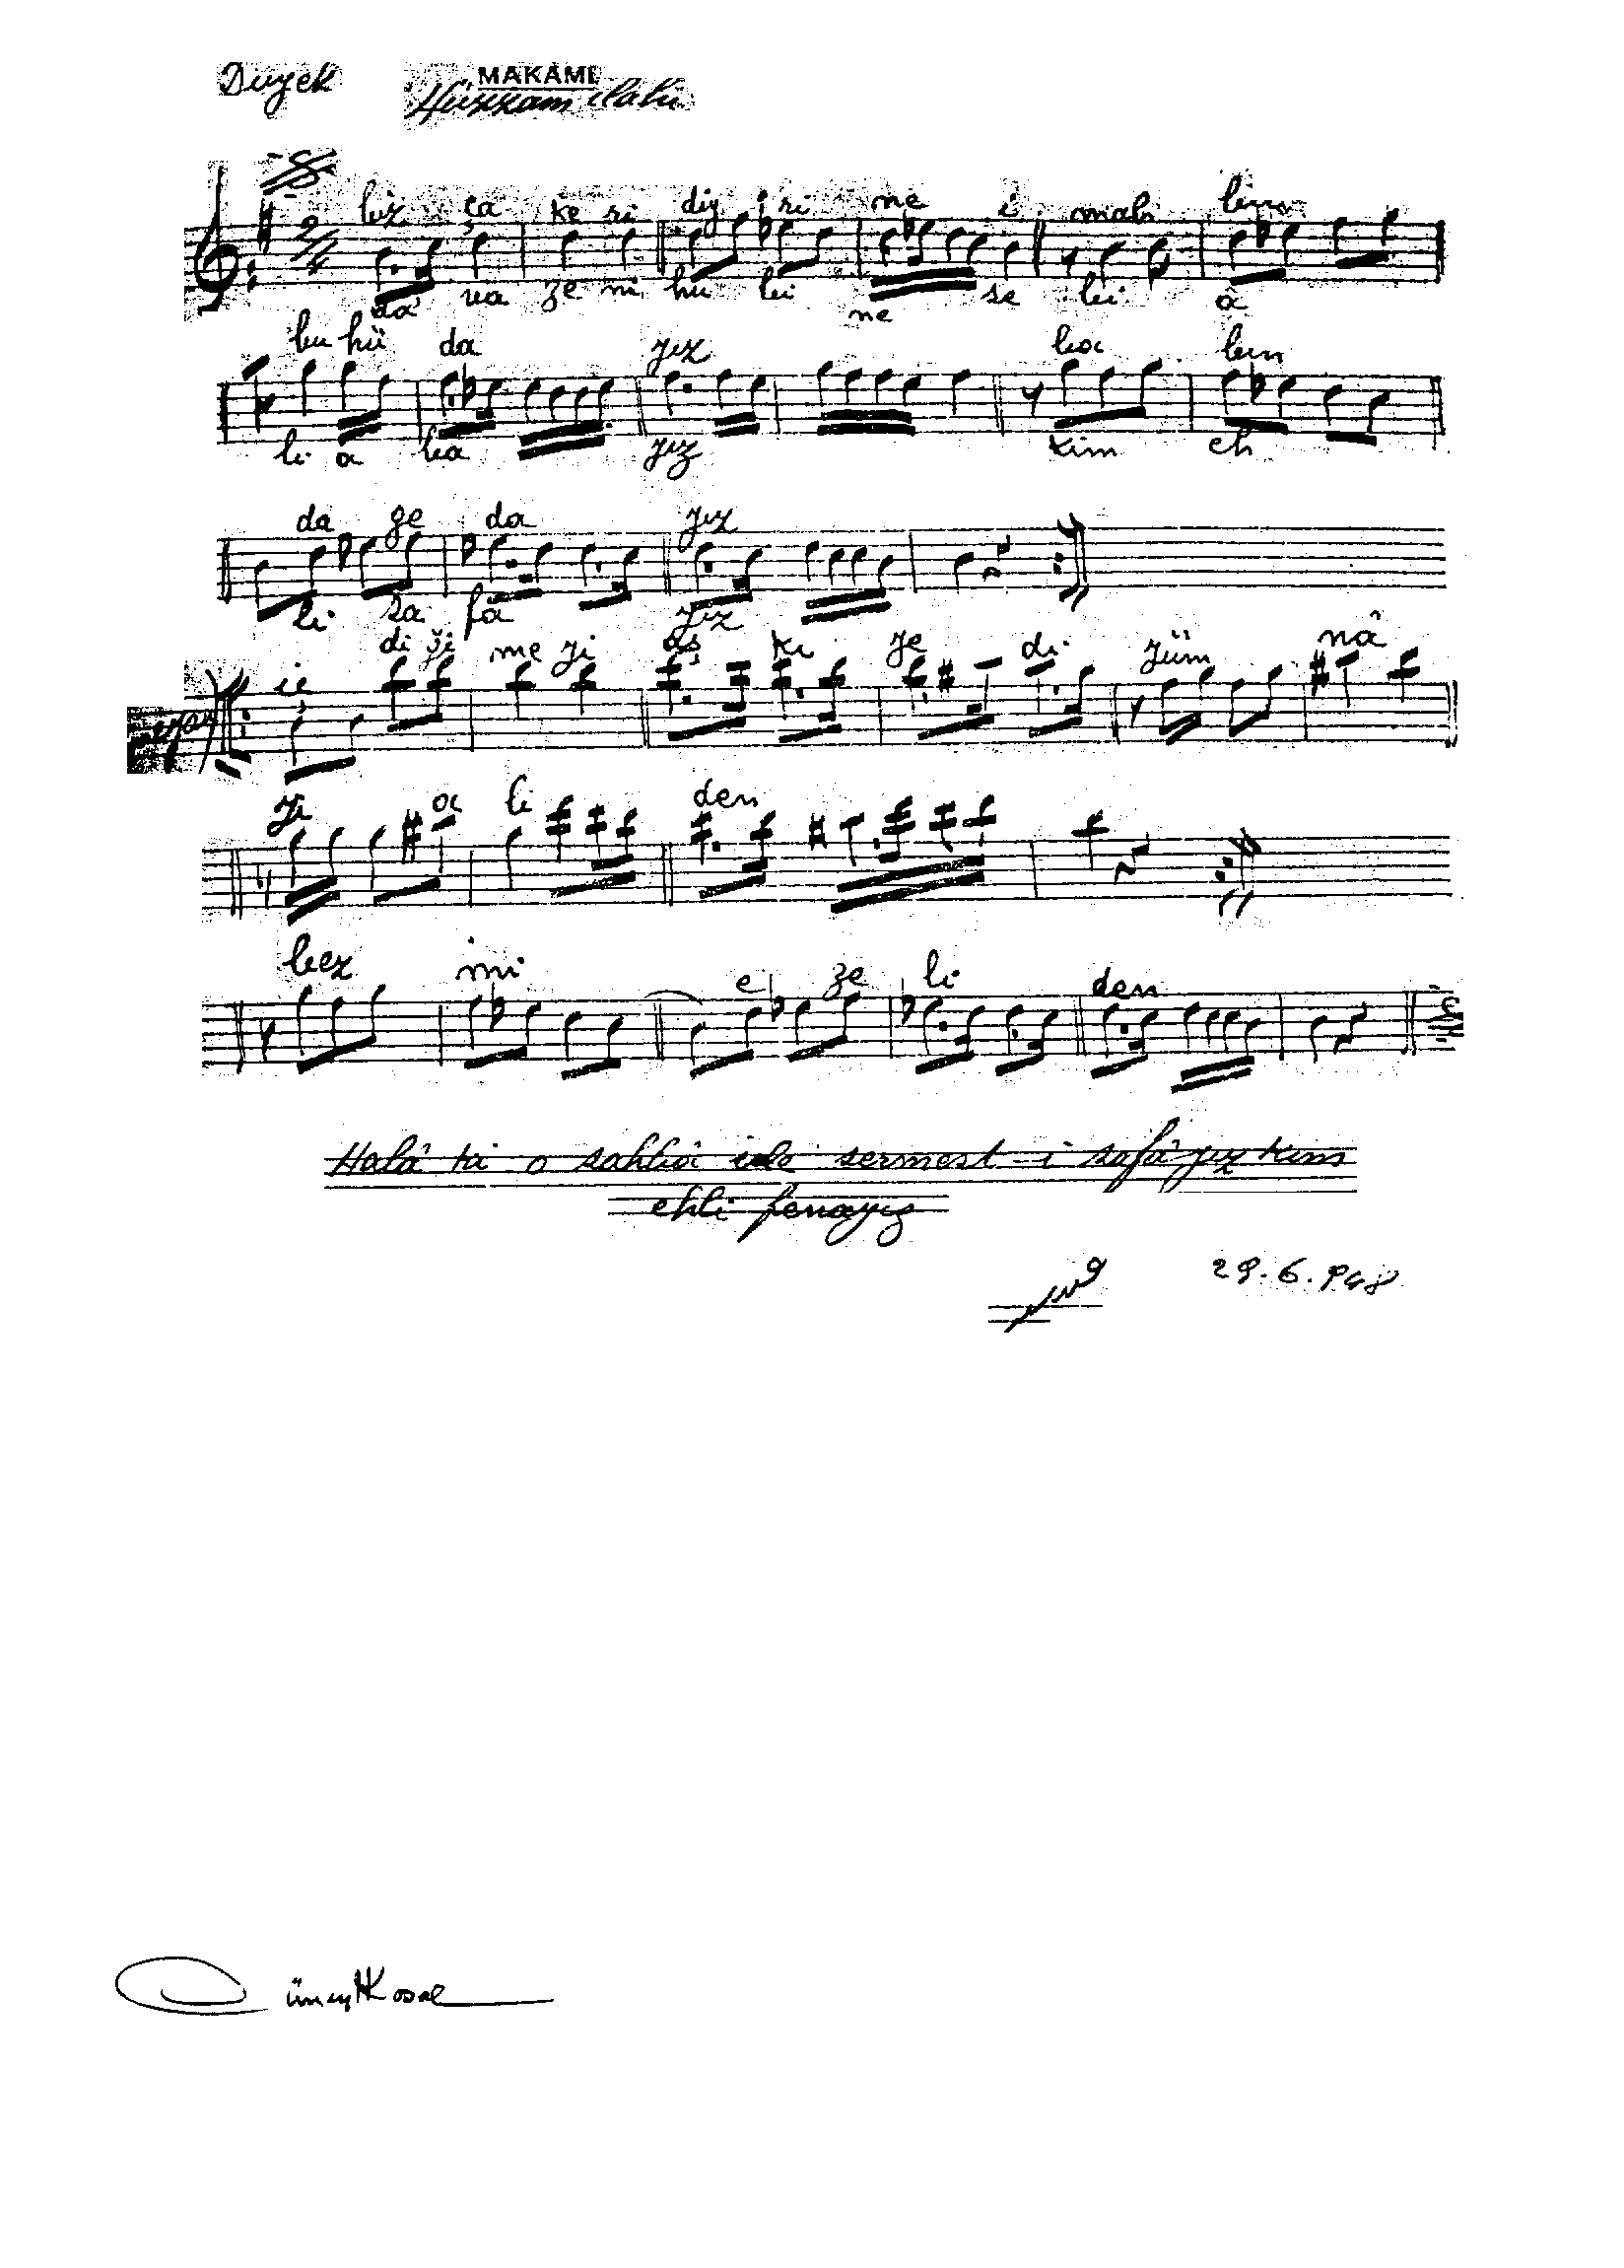 Duyek MAKAMI
Hüzzam ilahi
biz ça ke ri diy i ri ne i mah bu
da va ze ni hu lei ne se lei â
bu hü da yız ba bun
li a ba yız kim eh
da ge da yız
li sa fâ yız
iç di ği me yi aş kı ye di yüm nâ
yi a li den
bez mi e ze li den
Halâ ki o sahbâ ile sermest-i safâyız kim
ehli fenayız
29.6.948
Cüneyt Kosal